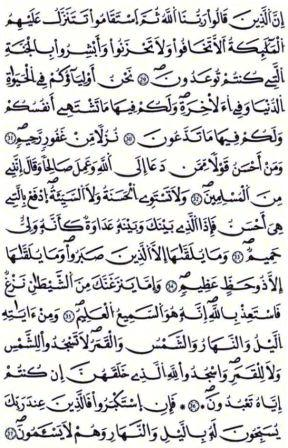 إِنَّ ٱلَّذِينَ قَالُوا۟ رَبُّنَا ٱللَّهُ ثُمَّ ٱسْتَقَٰمُوا۟ تَتَنَزَّلُ عَلَيْهِمُ
ٱلْمَلَٰٓئِكَةُ أَلَّا تَخَافُوا۟ وَلَا تَحْزَنُوا۟ وَأَبْشِرُوا۟ بِٱلْجَنَّةِ
ٱلَّتِى كُنتُمْ تُوعَدُونَ ٣٠ نَحْنُ أَوْلِيَآؤُكُمْ فِى ٱلْحَيَوٰةِ
ٱلدُّنْيَا وَفِى ٱلْءَاخِرَةِ وَلَكُمْ فِيهَا مَا تَشْتَهِىٓ أَنفُسُكُمْ
وَلَكُمْ فِيهَا مَا تَدَّعُونَ ٣١ نُزُلًا مِّنْ غَفُورٍ رَّحِيمٍ ٣٢
وَمَنْ أَحْسَنُ قَوْلًا مِّمَّن دَعَآ إِلَى ٱللَّهِ وَعَمِلَ صَٰلِحًا وَقَالَ إِنَّنِى
مِنَ ٱلْمُسْلِمِينَ ٣٣ وَلَا تَسْتَوِى ٱلْحَسَنَةُ وَلَا ٱلسَّيِّئَةُ ٱدْفَعْ بِٱلَّتِى
هِىَ أَحْسَنُ فَإِذَا ٱلَّذِى بَيْنَكَ وَبَيْنَهُۥ عَدَٰوَةٌ كَأَنَّهُۥ وَلِىٌّ
حَمِيمٌ ٣٤ وَمَا يُلَقَّىٰهَآ إِلَّا ٱلَّذِينَ صَبَرُوا۟ وَمَا يُلَقَّىٰهَآ
إِلَّا ذُو حَظٍّ عَظِيمٍ ٣٥ وَإِمَّا يَنزَغَنَّكَ مِنَ ٱلشَّيْطَٰنِ نَزْغٌ
فَٱسْتَعِذْ بِٱللَّهِ إِنَّهُۥ هُوَ ٱلسَّمِيعُ ٱلْعَلِيمُ ٣٦ وَمِنْ ءَايَٰتِهِ
ٱلَّيْلُ وَٱلنَّهَارُ وَٱلشَّمْسُ وَٱلْقَمَرُ لَا تَسْجُدُوا۟ لِلشَّمْسِ
وَلَا لِلْقَمَرِ وَٱسْجُدُوا۟ لِلَّهِ ٱلَّذِى خَلَقَهُنَّ إِن كُنتُمْ
إِيَّاهُ تَعْبُدُونَ ٣٧ فَإِنِ ٱسْتَكْبَرُوا۟ فَٱلَّذِينَ عِندَ رَبِّكَ
يُسَبِّحُونَ لَهُۥ بِٱلَّيْلِ وَٱلنَّهَارِ وَهُمْ لَا يَسْـَٔمُونَ ٣٨